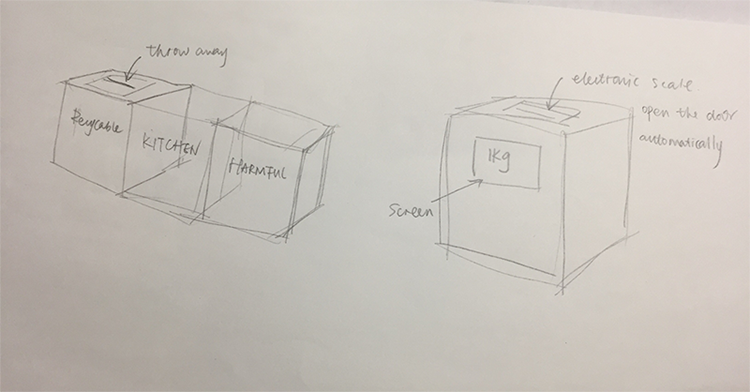 throw away
Recycable
KITCHEN
HARMFUL
electronic scale.
open the door
automatically
1kg
Screen